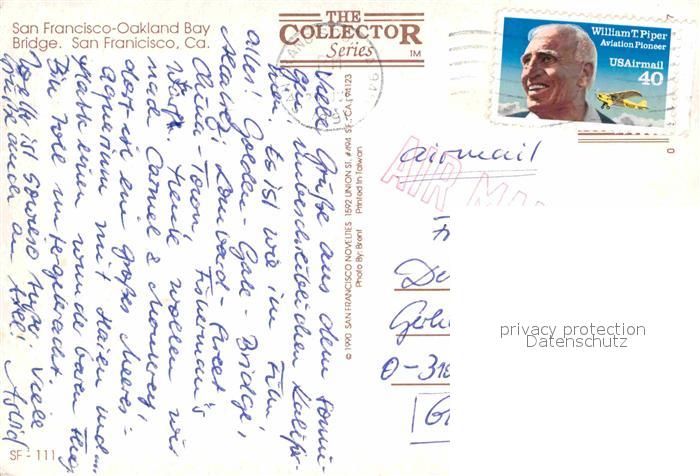 San Francisco-Oakland Bay
Bridge. San Franicisco, Ca.
THE
COLLECTOR
Series TM
William T. Piper
Aviation Pioneer
USAirmail
40
Viele Grüße aus dem sonni-
gen unbeschreiblichen Kalifor-
nien. Es ist wie im Film
alles! Golden-Gate-Bridge,
Lombard-Street
China-Town, Fisherman's
Heute wollen wir
nach Carmel & Monterey,
dort ist ein großes Meeres-
aquarium mit Haien und
einen wunderbaren Flug.
Bin toll untergebracht.
ist sowieso super. Viele
Grüße auch an Axel!
Astrid
© 1990 SAN FRANCISCO NOVELTIES 1592 UNION ST. #494 S.F., CA. 94123
Photo By: Brent Printed In Taiwan
airmail
AIR MA
F
De
Geh
O-318
G
privacy protection
Datenschutz
SF - 111